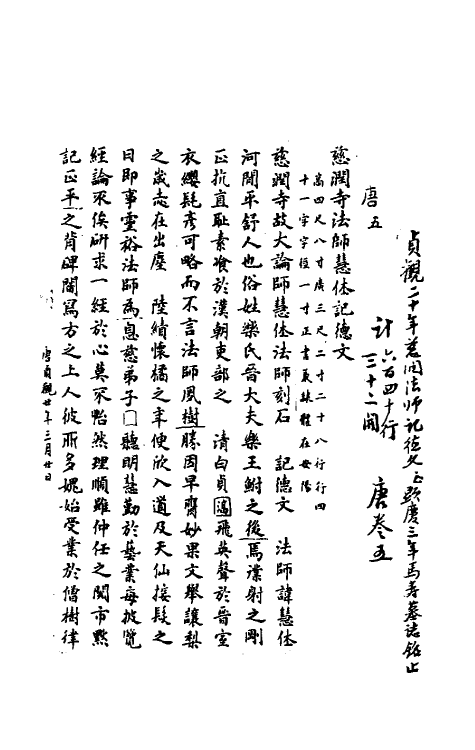 貞觀二十年慈潤法師記德文止顯慶三年馬壽墓誌銘止
計六百四十行
三十二開
唐卷五
唐五
慈潤寺法師慧休記德文
高四尺八寸廣三尺二寸二十八行行四
十一字字徑一寸正書兼隸體在安陽
慈潤寺故大論師慧休法師刻石 記德文 法師諱慧休
河閒平舒人也俗姓樂氏晉大夫樂王鮒之後焉澡射之剛
正抗直恥素飧於漢朝吏部之 清白貞 飛英聲於晉室
衣纓髦彥可略而不言法師風樹勝因早齊妙果文舉讓梨
之歲志在出塵 陸績懷橘之年便欣入道及天仙接髮之
日即事靈裕法師為息慈弟子□聽明慧勤於藝業每披覽
經論不俟研求一經於心莫不怡然理順雖仲任之閱市默
記正平之背碑闇寫方之上人彼所多媿始受業於僧樹律
唐貞觀廿年三月廿日